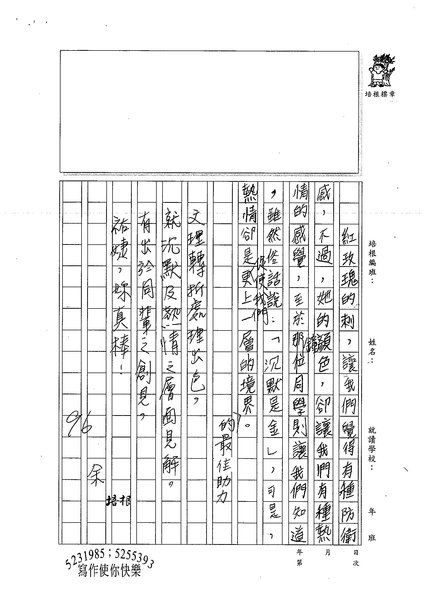 培根標章
培根編班：　姓名：　就讀學校：　年　班
年　月　日
第　次
紅玫瑰的刺，讓我們覺得有種防衛
感，不過，她的顏色，卻讓我們有種熱
情的感覺，至於那位同學則讓我們知道
，雖然俗話說：「沉默是金」，可是，
熱情卻是促使我們更上一層的境界。
的最佳助力
文理轉折處理出色，
就沉默及熱情之層面見解。
有出於同輩之創見，
祐婕，妳真棒！
96
余
培根
5231985；5255393
寫作使你快樂